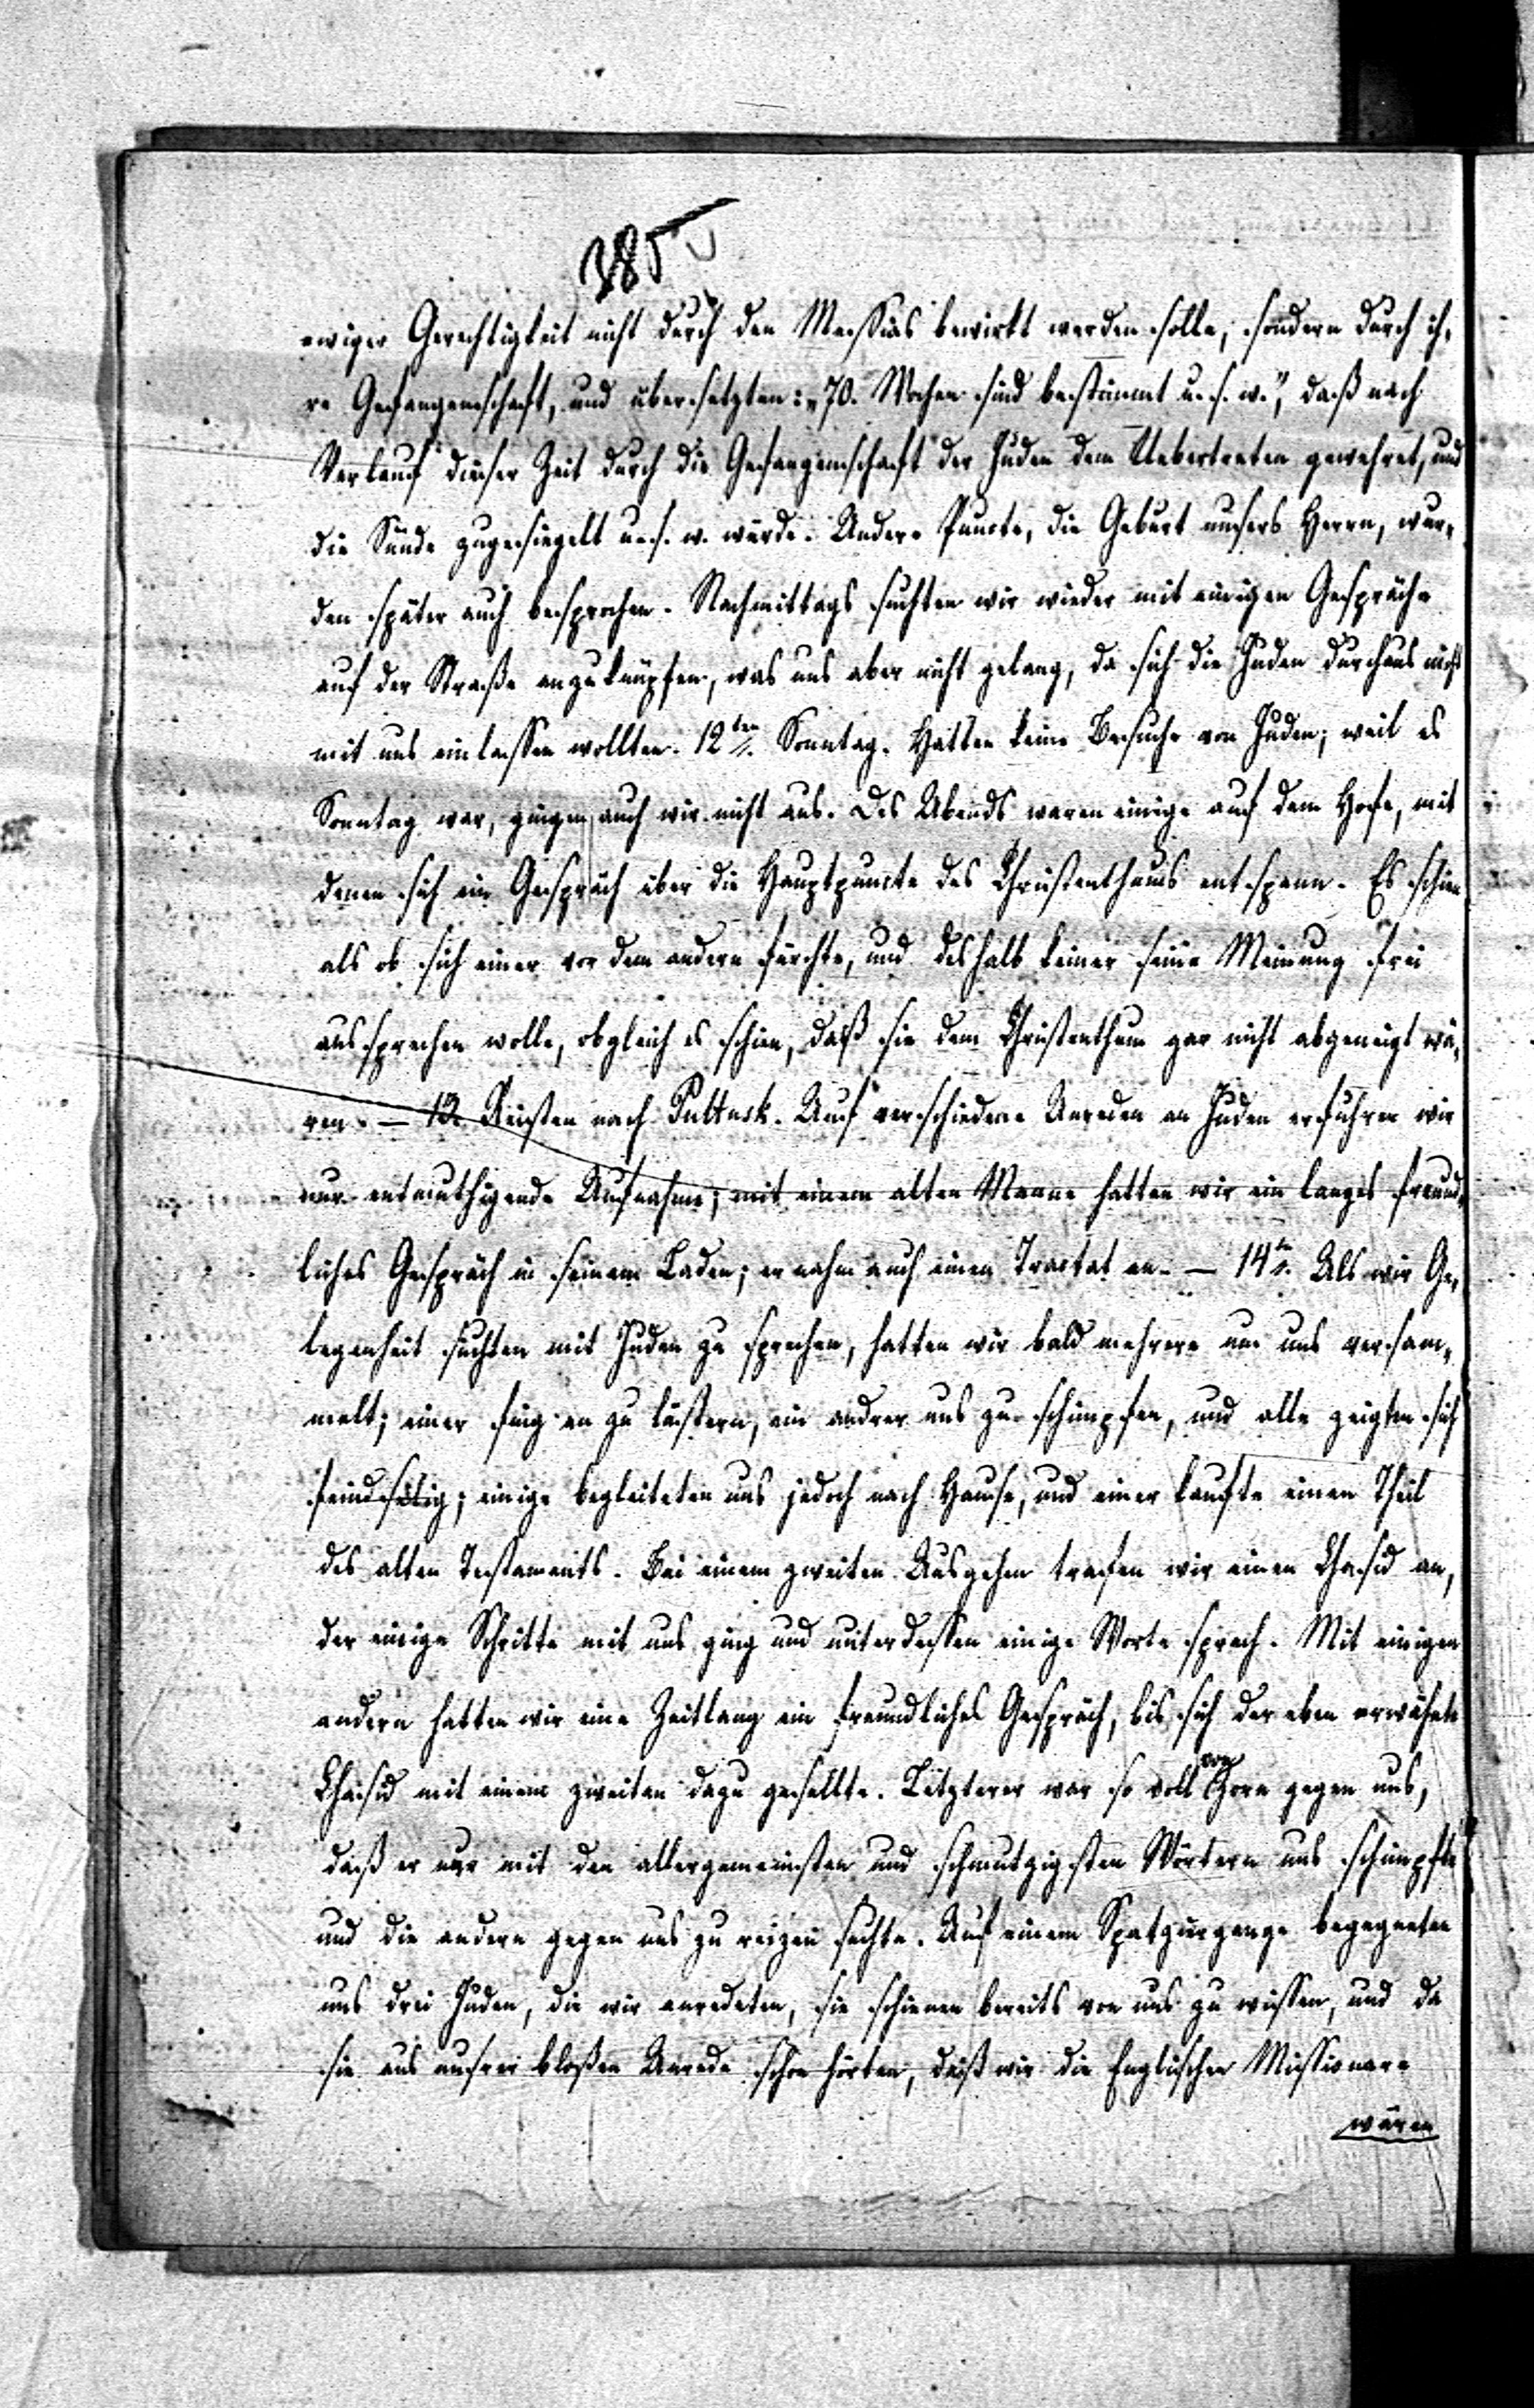 385
ewiger Gerechtigkeit nicht durch den Messias bewirkt werden solle, sondern durch ih-
re Gefangenschaft, und übersetzten: „70. Wochen sind bestimmt u. s. w.", daß nach
Verlauf dieser Zeit durch die Gefangenschaft der Juden dem Uebertreten gewehret, und
die Sünde zugesiegelt u. s. w. würde. Andere Puncte, die Geburt unsers Herrn, wur-
den später auch besprochen. Nachmittags suchten wir wieder mit einigen Gespräche
auf der Straße anzuknüpfen, was uns aber nicht gelang, da sich die Juden durchaus nicht
mit uns einlassen wollten. 12ten Sonntag. Hatten keine Besuche von Juden; weil es
Sonntag war, gingen auch wir nicht aus. Des Abends waren einige auf dem Hofe, mit
denen sich ein Gespräch über die Hauptpuncte des Christenthums entspann. Es schien
als ob sich einer vor dem andern fürchte, und deshalb keiner seine Meinung frei
aussprechen wolle, obgleich es schien, daß sie dem Christenthum gar nicht abgeneigt wä-
ren. — 13. Reisten nach Pultusk. Auf verschiedene Anreden an Juden erfuhren wir
nur entmuthigende Aufnahme; mit einem alten Manne hatten wir ein langes freund-
liches Gespräch in seinem Laden; er nahm auch einen Tractat an. — 14ten Als wir Ge-
legenheit suchten mit Juden zu sprechen, hatten wir bald mehrere um uns versam-
melt; einer fing an zu lästern, ein andrer uns zu schimpfen, und alle zeigten sich
feindselig; einige begleiteten uns jedoch nach Hause, und einer kaufte einen Theil
des alten Testaments. Bei einem zweiten Ausgehen trafen wir einen Chasid an,
der einige Schritte mit uns ging und unterdessen einige Worte sprach. Mit einigen
andern hatten wir eine Zeitlang ein freundliches Gespräch, bis sich der eben erwähnte
Chasid mit einem zweiten dazu gesellte. Letzterer war so voll von Zorn gegen uns,
daß er nur mit den allergemeinsten und schmutzigsten Wörtern uns schimpfte
und die andern gegen uns zu reizen suchte. Auf einem Spatziergange begegneten
uns drei Juden, die wir anredeten, sie schienen bereits von uns zu wissen, und da
sie aus unsrer bloßen Anrede schon hörten, daß wir die Englischen Missionare
wären